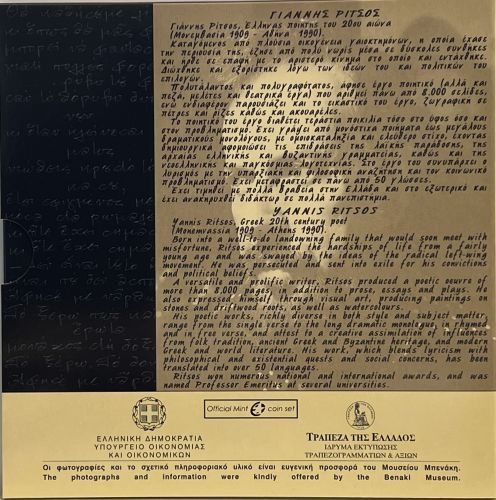 ΓΙΑΝΝΗΣ ΡΙΤΣΟΣ
Γιάννης Ρίτσος, Έλληνας ποιητής του 20ου αιώνα
(Μονεμβασία 1909 - Αθήνα 1990).
Καταγόμενος από πλούσια οικογένεια γαιοκτημόνων, η οποία έχασε
την περιουσία της, έζησε από πολύ νωρίς μέσα σε δύσκολες συνθήκες
και ήρθε σε επαφή με το αριστερό κίνημα στο οποίο και εντάχθηκε.
Διώχθηκε και εξορίστηκε λόγω των ιδεών του και πολιτικών του
επιλογών.
Πολυτάλαντος και πολυγραφότατος, άφησε έργο ποιητικό (αλλά και
πεζά, μελέτες και θεατρικά έργα) που αριθμεί πάνω από 8.000 σελίδες,
ενώ ενδιαφέρον παρουσιάζει και το εικαστικό του έργο, ζωγραφική σε
πέτρες και ρίζες καθώς και ακουαρέλες.
Το ποιητικό του έργο διαθέτει τεράστια ποικιλία τόσο στο ύφος όσο και
στον προβληματισμό. Έχει γράψει από μονόστιχα ποιήματα έως μεγάλους
δραματικούς μονολόγους, με ομοιοκαταληξία και ελεύθερο στίχο, έχοντας
δημιουργικά αφομοιώσει τις επιδράσεις της λαϊκής παράδοσης, της
αρχαίας ελληνικής και βυζαντινής γραμματείας, καθώς και της
νεοελληνικής και παγκόσμιας λογοτεχνίας. Στο έργο του συνυπάρχει ο
λυρισμός με την υπαρξιακή και φιλοσοφική αναζήτηση και τον κοινωνικό
προβληματισμό. Έχει μεταφραστεί σε πάνω από 50 γλώσσες.
Έχει τιμηθεί με πολλά βραβεία στην Ελλάδα και στο εξωτερικό και
έχει ανακηρυχθεί διδάκτωρ σε πολλά πανεπιστήμια.
YANNIS RITSOS
Yannis Ritsos, Greek 20th century poet
(Monemvassia 1909 - Athens 1990).
Born into a well-to-do landowning family that would soon meet with
misfortune, Ritsos experienced the hardships of life from a fairly
young age and was swayed by the ideas of the radical left-wing
movement. He was persecuted and sent into exile for his convictions
and political beliefs.
A versatile and prolific writer, Ritsos produced a poetic oeuvre of
more than 8,000 pages, in addition to prose, essays and plays. He
also expressed himself through visual art, producing paintings on
stones and driftwood roots, as well as watercolours.
His poetic works, richly diverse in both style and subject matter,
range from the single verse to the long dramatic monologue, in rhymes
and in free verse, and attest to a creative assimilation of influences
from folk tradition, ancient Greek and Byzantine heritage, and modern
Greek and world literature. His work, which blends lyricism with
philosophical and existential quests and social concerns, has been
translated into over 50 languages.
Ritsos won numerous national and international awards, and was
named Professor Emeritus of several universities.
Official Mint € coin set
ΕΛΛΗΝΙΚΗ ΔΗΜΟΚΡΑΤΙΑ
ΥΠΟΥΡΓΕΙΟ ΟΙΚΟΝΟΜΙΑΣ
ΚΑΙ ΟΙΚΟΝΟΜΙΚΩΝ
ΤΡΑΠΕΖΑ ΤΗΣ ΕΛΛΑΔΟΣ
ΙΔΡΥΜΑ ΕΚΤΥΠΩΣΗΣ
ΤΡΑΠΕΖΟΓΡΑΜΜΑΤΙΩΝ & ΑΞΙΩΝ
Οι φωτογραφίες και το σχετικό πληροφοριακό υλικό είναι ευγενική προσφορά του Μουσείου Μπενάκη.
The photographs and information were kindly offered by the Benaki Museum.